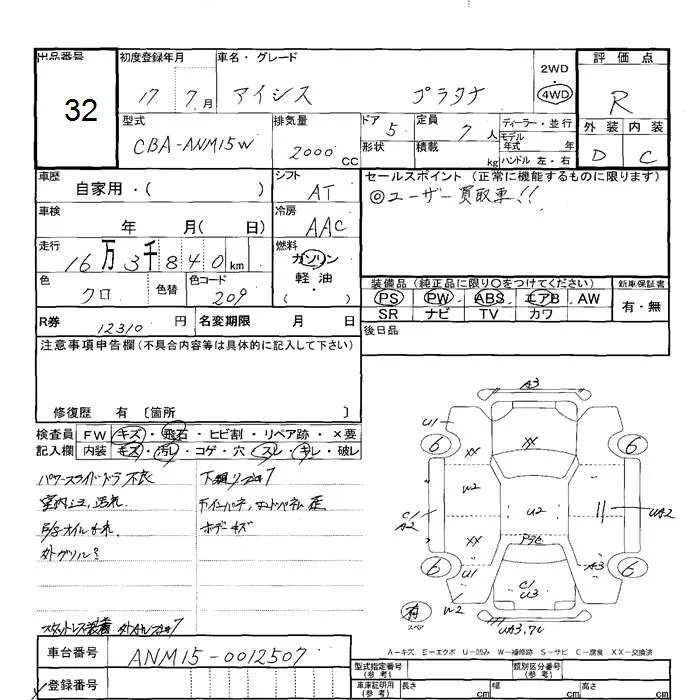 出品番号 初度登録年月 車名・グレード 2WD 評価点
32 17 7月 アイシス プラタナ 4WD R
型式 排気量 ドア 5 定員 7人 ディーラー・並行 外装 内装
CBA-ANM15W 2000CC 形状 積載 kg モデル年式 年 D C
ハンドル 左・右
車歴 シフト セールスポイント(正常に機能するものに限ります)
自家用・( ) AT ◎ユーザー買取車!!
車検 年 月( 日) 冷房 AAC
走行 燃料
16万3千840km ガソリン・軽油・( )
色 色替 色コード 装備品(純正品に限り○をつけてください) 新車保証書
クロ 209 PS・PW・ABS・エアB・AW 有・無
SR ナビ TV カワ
R券 12310円 名変期限 月 日 後日品
注意事項申告欄(不具合内容等は具体的に記入して下さい)
修復歴 有 〔箇所 〕
検査員 FW キズ・飛石・ヒビ割・リペア跡・×要
記入欄 内装 キズ・汚レ・コゲ・穴・スレ・キレ・破レ
パワースライドドア不良
ボデーキズ
A3
U1
6 6
XX XX
W2
C/A2 U2 UA2
XX
U1 A3
6 6
C/U3
W2
有
スペア
A=キズ E=エクボ U=凹み W=補修跡 S=サビ C=腐食 XX=交換済
車台番号 ANM15-0012507
登録番号
型式指定番号(参考) 類別区分番号(参考)
車庫証明用(参考) 長さ cm 幅 cm 高さ cm